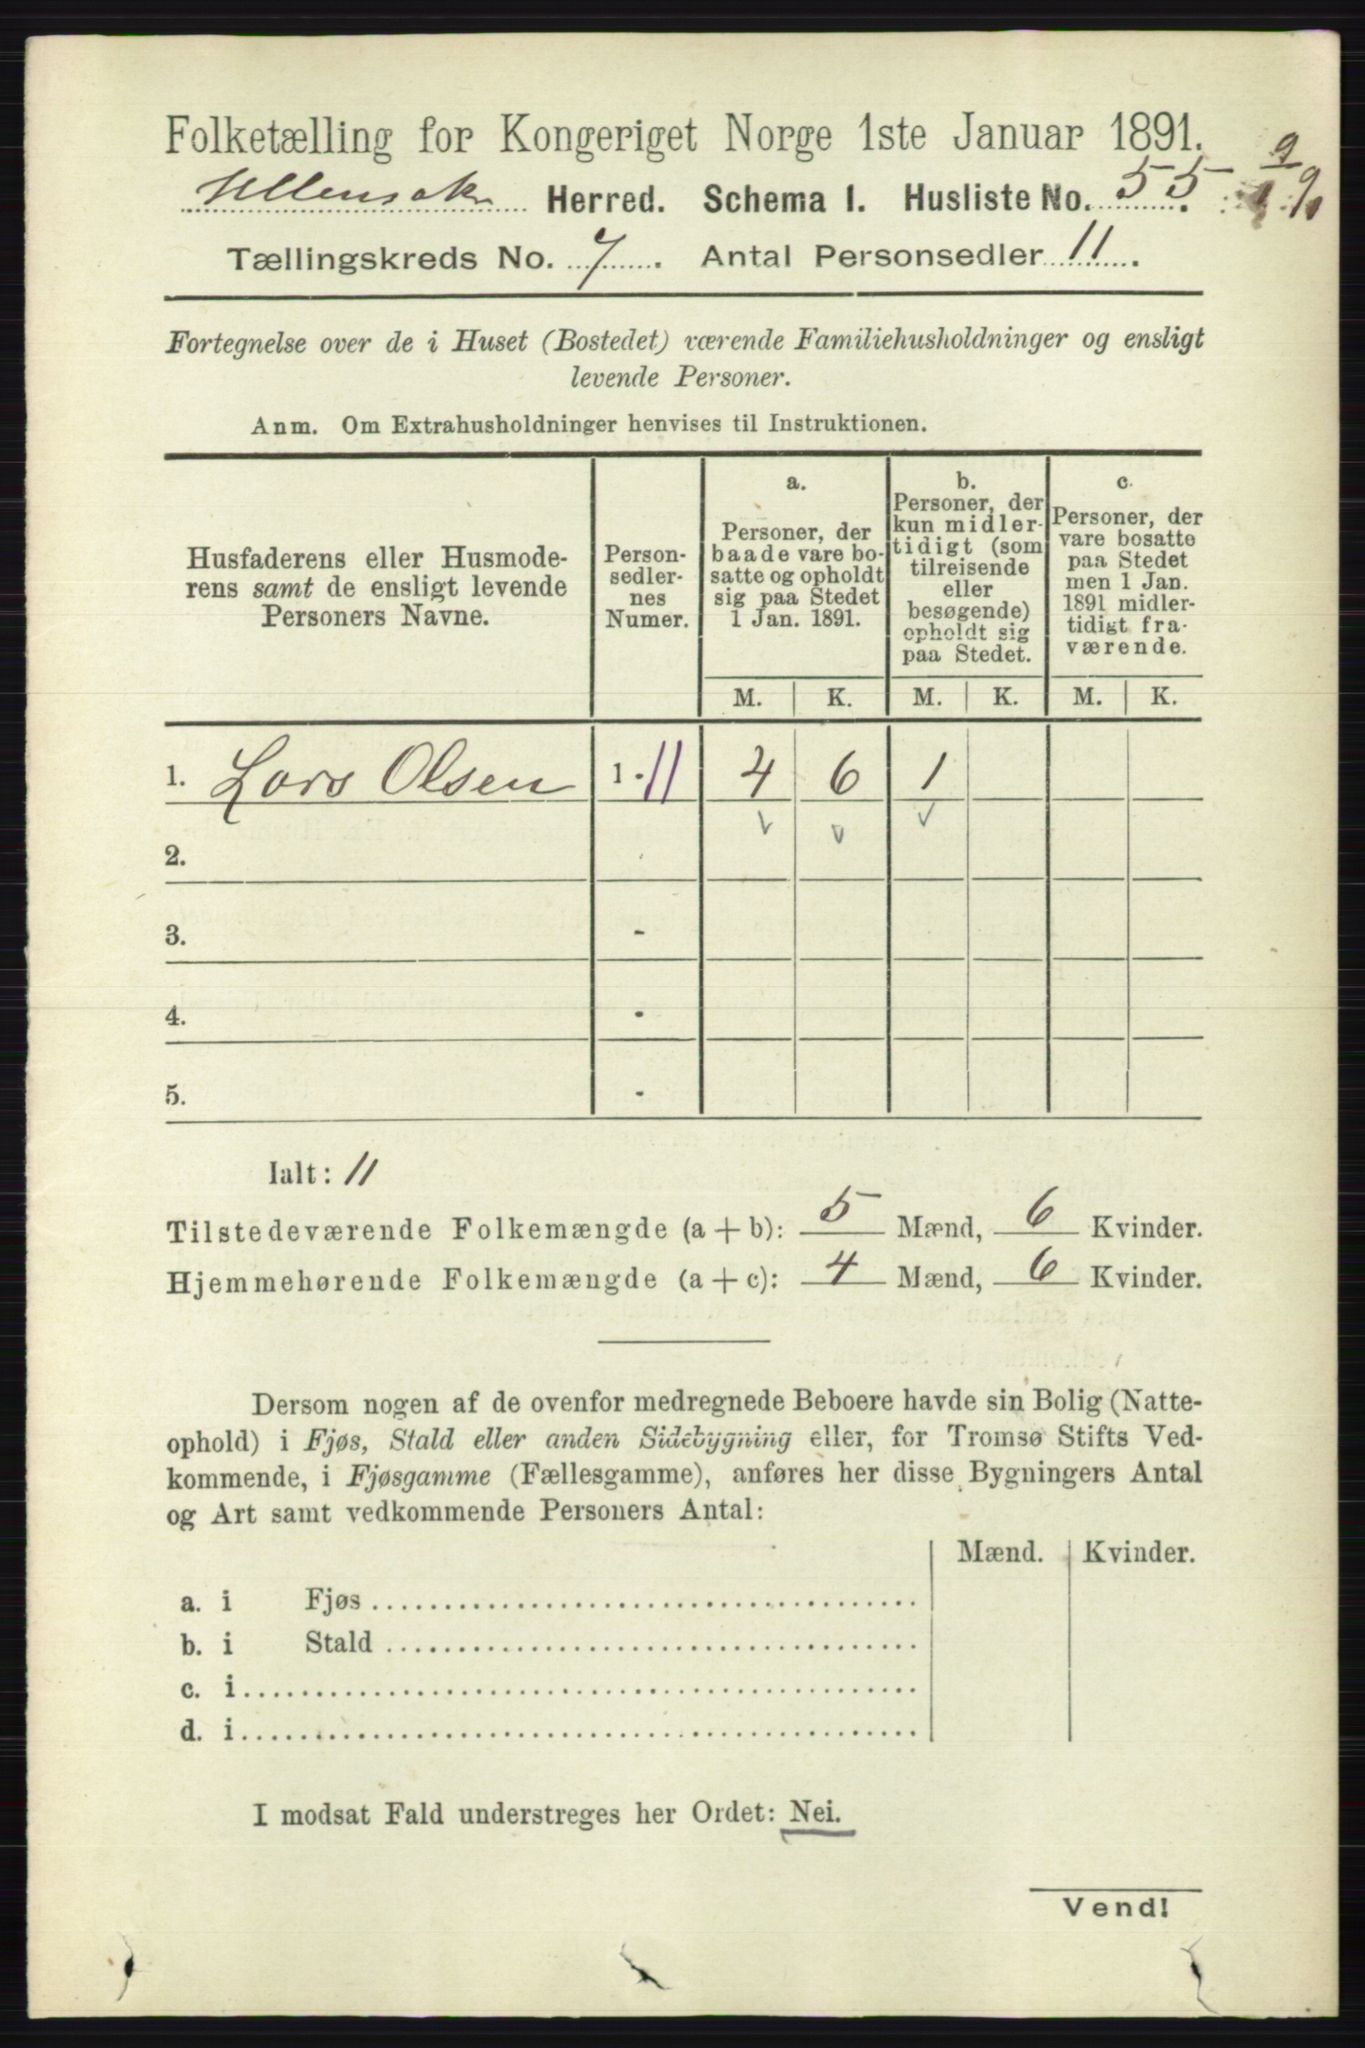 Folketælling for Kongeriget Norge 1ste Januar 1891.
Ullensaker Herred. Schema I. Husliste No. 55.
Tællingskreds No. 7. Antal Personsedler 11.
Fortegnelse over de i Huset (Bostedet) værende Familiehusholdninger og ensligt
levende Personer.
Anm. Om Extrahusholdninger henvises til Instruktionen.
Husfaderens eller Husmode-
rens samt de ensligt levende
Personers Navne.
Person-
sedler-
nes
Numer.
a.
Personer, der
baade vare bo-
satte og opholdt
sig paa Stedet
1 Jan. 1891.
b.
Personer, der
kun midler-
tidigt (som
tilreisende
eller
besøgende)
opholdt sig
paa Stedet.
c.
Personer, der
vare bosatte
paa Stedet
men 1 Jan.
1891 midler-
tidigt fra-
værende.
M. K. M. K. M. K.
1. Lars Olsen 1 - 11 4 6 1
2.
3. -
4. -
5. -
Ialt: 11
Tilstedeværende Folkemængde (a + b): 5 Mænd, 6 Kvinder.
Hjemmehørende Folkemængde (a + c): 4 Mænd, 6 Kvinder.
Dersom nogen af de ovenfor medregnede Beboere havde sin Bolig (Natte-
ophold) i Fjøs, Stald eller anden Sidebygning eller, for Tromsø Stifts Ved-
kommende, i Fjøsgamme (Fællesgamme), anføres her disse Bygningers Antal
og Art samt vedkommende Personers Antal:
Mænd. Kvinder.
a. i Fjøs
b. i Stald
c. i
d. i
I modsat Fald understreges her Ordet: Nei.
Vend!